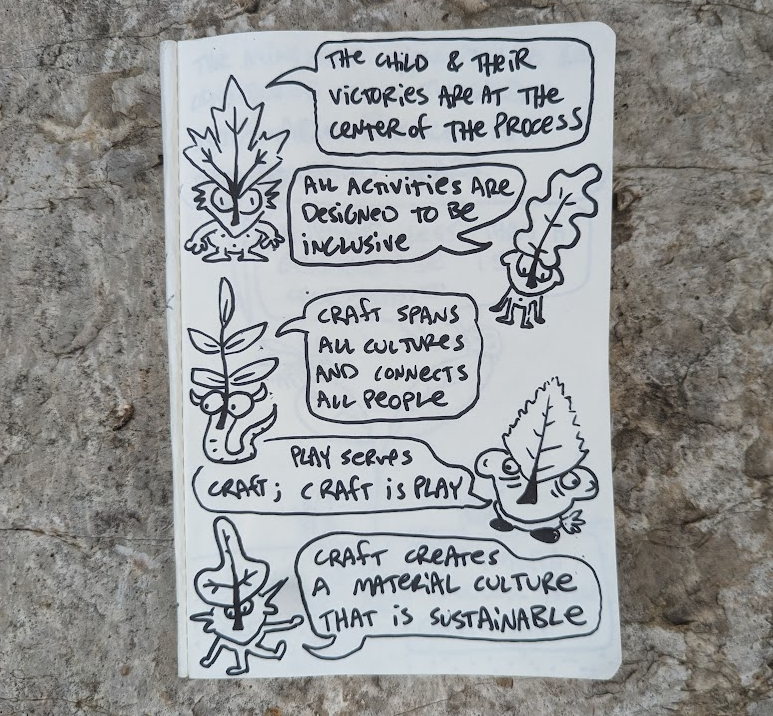 THE CHILD & THEIR
VICTORIES ARE AT THE
CENTER OF THE PROCESS
ALL ACTIVITIES ARE
DESIGNED TO BE
INCLUSIVE
CRAFT SPANS
ALL CULTURES
AND CONNECTS
ALL PEOPLE
PLAY SERVES
CRAFT; CRAFT IS PLAY
CRAFT CREATES
A MATERIAL CULTURE
THAT IS SUSTAINABLE